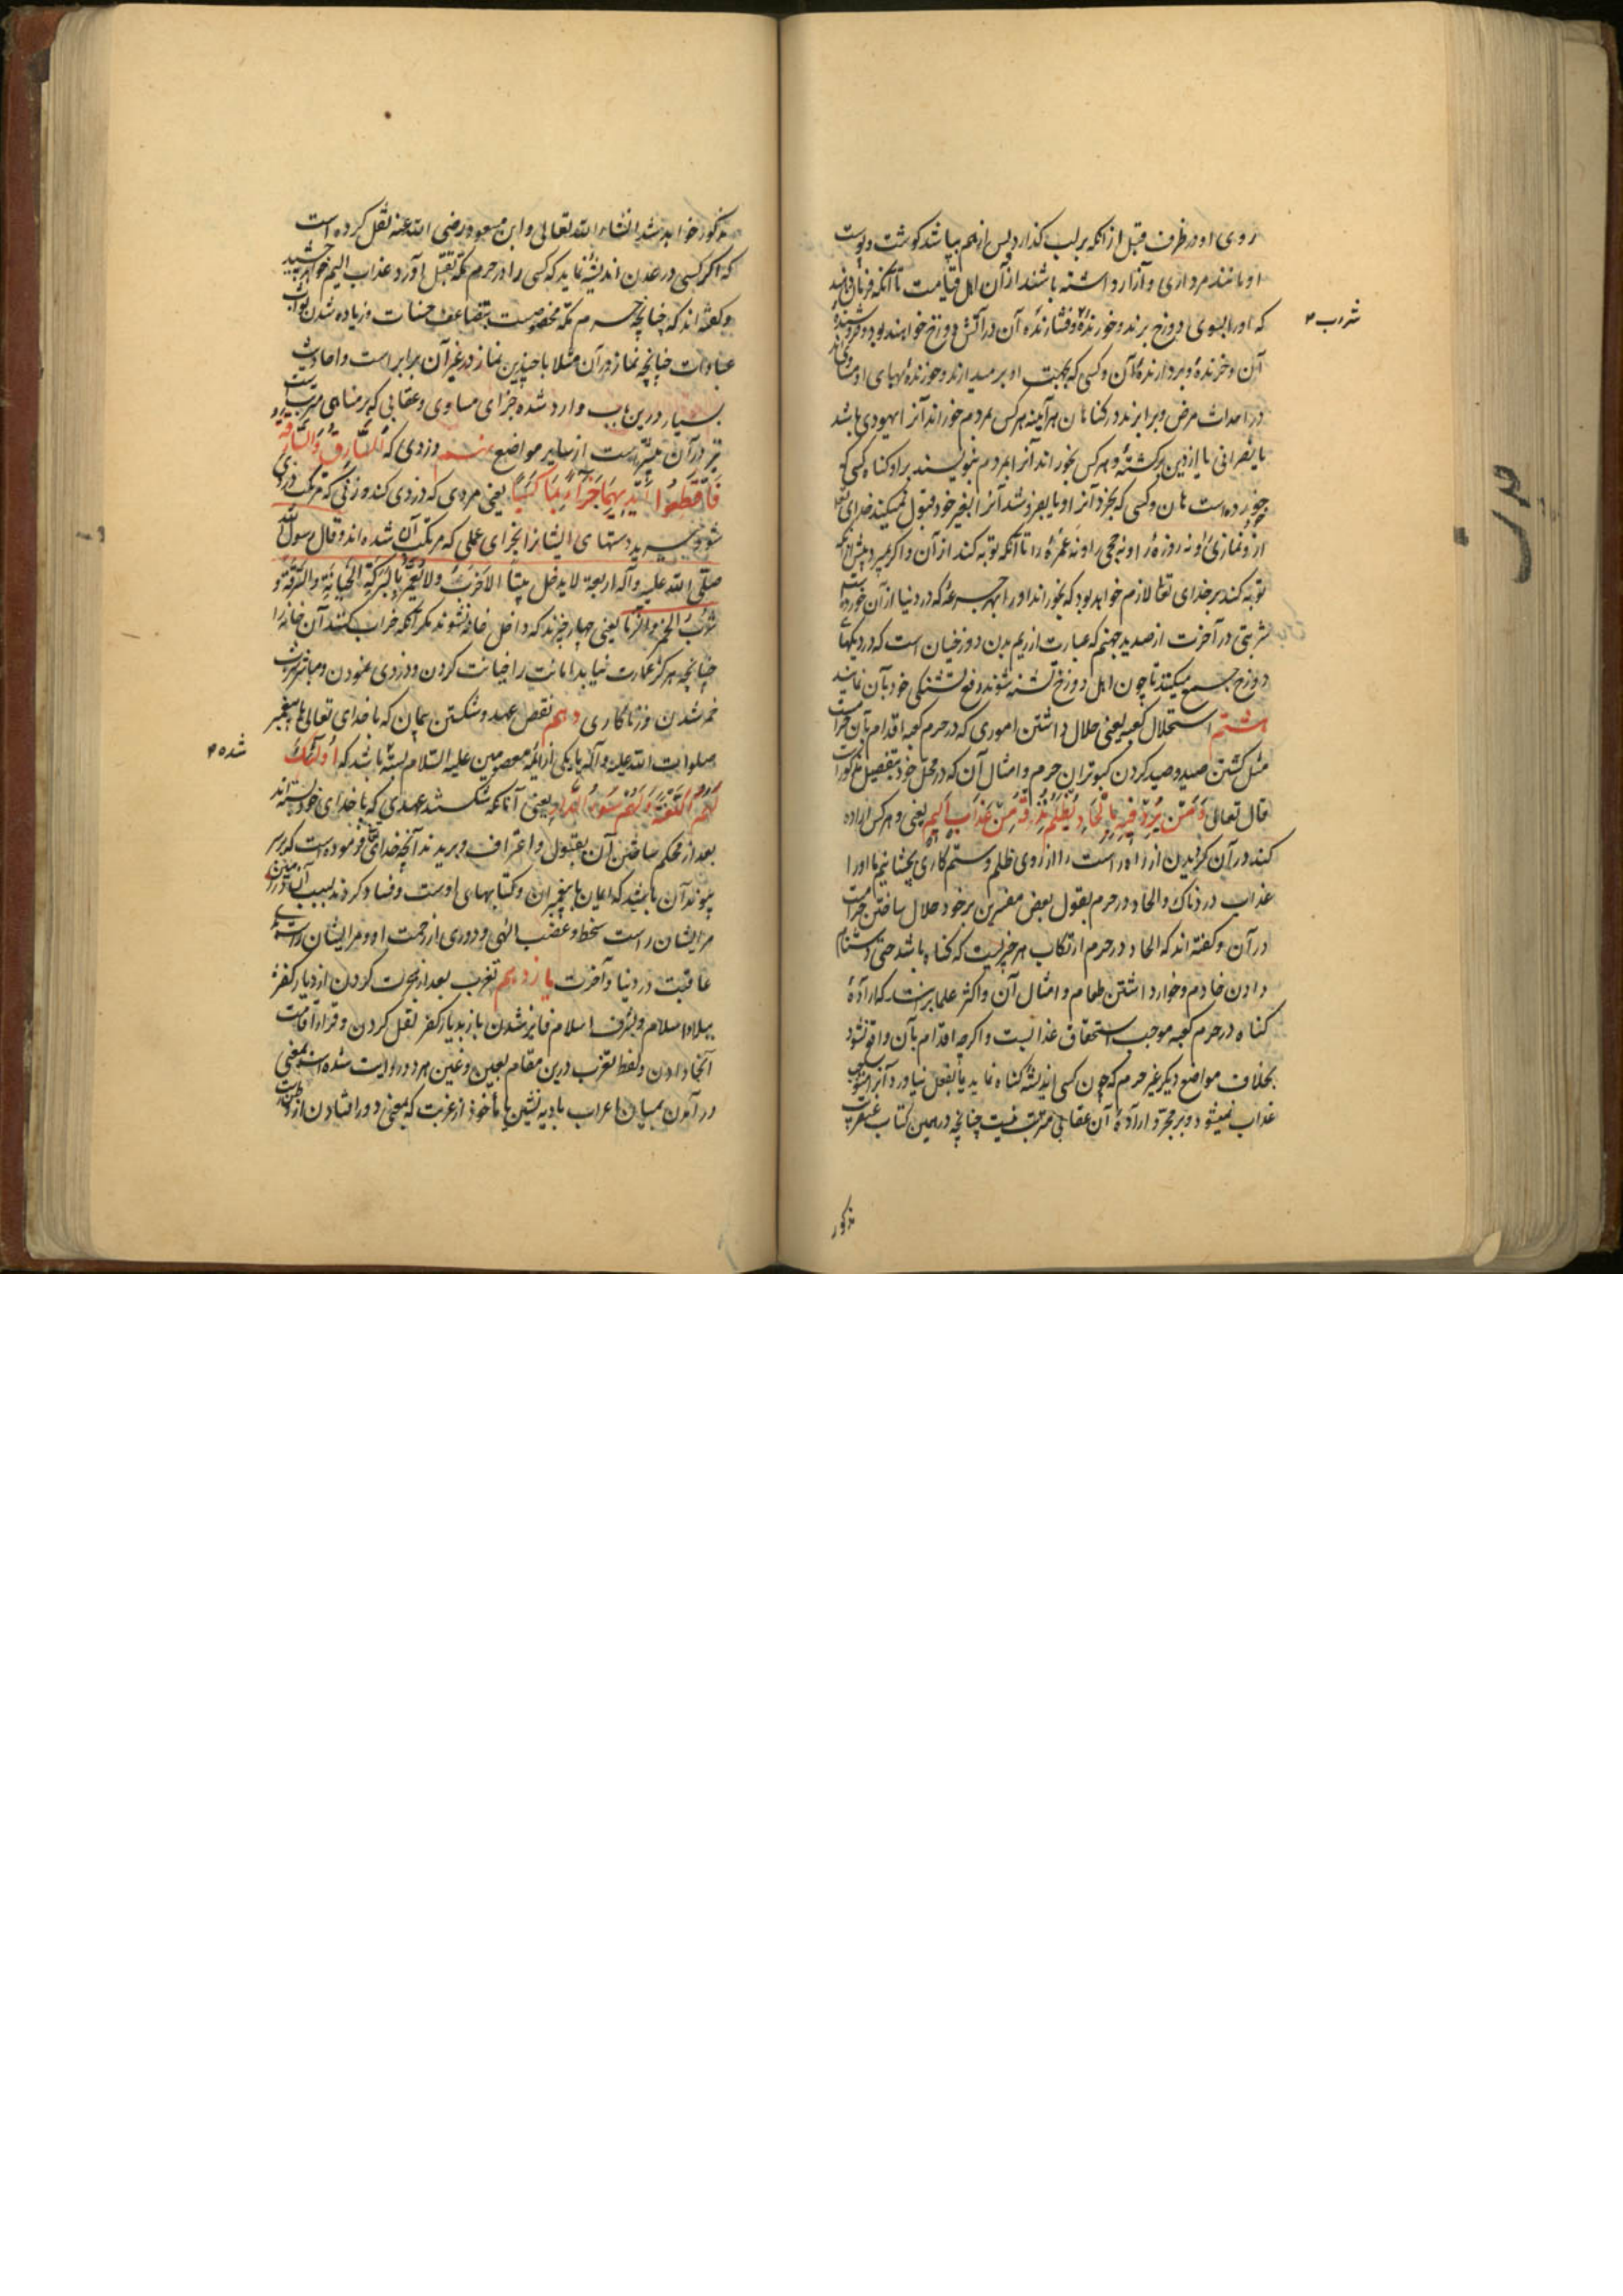 روی او در ظرف قبل از آنکه بر لب گذارد پس از هم بپاشد گوشت و پوست
او مانند مرداری و آزار داشته باشند از آن اهل قیامت تا آنکه فرمان
که او را بسوی دوزخ برند و خورندهٔ و فشارندهٔ آن در آتش دوزخ خواهند بود و فروشنده
آن و خرندهٔ و بردارندهٔ آن و کسی که بجهت او برمیدارند و خورندهٔ بهای او مساوی‌اند
در احداث مرض و برابرند در گناهان هرآینه هر کس بمردم خوراند آنرا یهودی باشد
یا نصرانی یا از دین برگشتهٔ و هر کس بخوراند آنرا بمردم بنویسند بر او گناه کسی که
خورده است هان و کسی که بخرد آنرا و یا بفروشد آنرا بغیر خود قبول نمیکند خدای تعالی
ازو نمازی او نه روزهٔ را و نه حجی را و نه عمرهٔ را تا آنکه توبه کند از آن و اگر بمیرد پیش از آنکه
توبه کند بر خدای تعالی لازم خواهد بود که بخوراند او را بهر جرعهٔ که در دنیا از آن خورده است
شربتی در آخرت از صدید جهنم که عبارت از ریم بدن دوزخیان است که در دیکهای
دوزخ جمع میکنند تا چون اهل دوزخ تشنه شوند دفع تشنگی خود بآن نمایند
هشتم استحلال کعبه یعنی حلال داشتن اموری که در حرم کعبه اقدام بآن حرام است
مثل کشتن صید و صید کردن کبوتران حرم و امثال آن که در محل خود بتفصیل مذکور است
قال تعالی وَمَنْ يُرِدْ فِيهِ بِإِلْحَادٍ بِظُلْمٍ نُذِقْهُ مِنْ عَذَابٍ أَلِيمٍ یعنی و هر کس اراده
کند در آن گردیدن از راه راست را از روی ظلم و ستمکاری بچشانیم ما او را
عذاب دردناک و الحاد در حرم بقول بعض مفسرین بر خود حلال ساختن حرام است
در آن و گفته‌اند که الحاد در حرم ارتکاب هر چیزیست که گناه باشد حتی دشنام
دادن خادم و خوار داشتن طعام و امثال آن و اکثر علما برانند که ارادهٔ
گناه در حرم کعبه موجب استحقاق عذابست و اگرچه اقدام بآن واقع نشود
بخلاف مواضع دیگر غیر حرم که چون کسی اندیشه گناه نماید تا بفعل نیاورد آنرا مستوجب
عذاب نمیشود و بر مجرد ارادهٔ آن عقابی مترتب نیست چنانچه در همین کتاب عنقریب
مذکور
مذکور خواهد شد انشاء الله تعالی و ابن مسعود رضی الله عنه نقل کرده است
که اگر کسی در عدن اندیشه نماید که کسی را در حرم مکه بقتل آورد عذاب الیم خواهد چشید
و گفته‌اند که چنانچه حرم مکه مخصوصست بتضاعف حسنات و زیاده شدن ثواب
عبادات چنانچه نماز در آن مثلا با چندین نماز در غیر آن برابر است و احادیث
بسیار درین باب وارد شده جزای مساوی و عقابی که بر مناهی مترتب است
نیز در آن بیشتر است از سایر مواضع نهم دزدی که السَّارِقُ وَالسَّارِقَةُ
فَاقْطَعُوا أَيْدِيَهُمَا جَزَاءً بِمَا كَسَبَا یعنی مردی که دزدی کند و زنی که مرتکب دزدی
شود ببرید دستهای ایشانرا بجزای عملی که مرتکب آن شده‌اند و قال رسول الله
صلی الله علیه وآله اربعة لا یدخل بیتا الا خرب ولا یعمر بالبرکة الخیانة والسرقة و
شرب الخمر والزنا یعنی چهار چیزند که داخل خانه نشوند مگر آنکه خراب کنند آن خانه را
چنانچه هرگز عمارت نیابد امانت را خیانت کردن و دزدی نمودن و مباشر شرب
خمر شدن و زناکاری دهم نقض عهد و شکستن پیمان که با خدای تعالی یا پیغمبر
صلوات الله علیه وآله یا یکی از ائمه معصومین علیه السلام بسته باشد که أُولَئِكَ
لَهُمُ اللَّعْنَةُ وَلَهُمْ سُوءُ الدَّارِ یعنی آنانکه شکستند عهدی که با خدای خود بسته‌اند
بعد از محکم ساختن آن بقبول و اعتراف و بریدند آنچه خدای تعالی فرموده است که
پیوند آن باشد که ایمان به پیغمبران و کتابهای اوست و فساد کردند بسبب آن در زمین
مر ایشان راست سخط و غضب الهی و دوری از رحمت او و مر ایشان راست بدی
عاقبت در دنیا و آخرت یازدهم تعرب بعد از هجرت کردن از دیار کفره
ببلاد اسلام و بشرف اسلام فایز شدن باز بدیار کفر نقل کردن و قرار اقامت
آنجا دادن و لفظ تعرب درین مقام بعین و غین هر دو روایت شده است بمعنی
در آمدن بمیان اعراب بادیه نشین یا مأخوذ از غربت که بمعنی دور افتادن از وطنست
شده